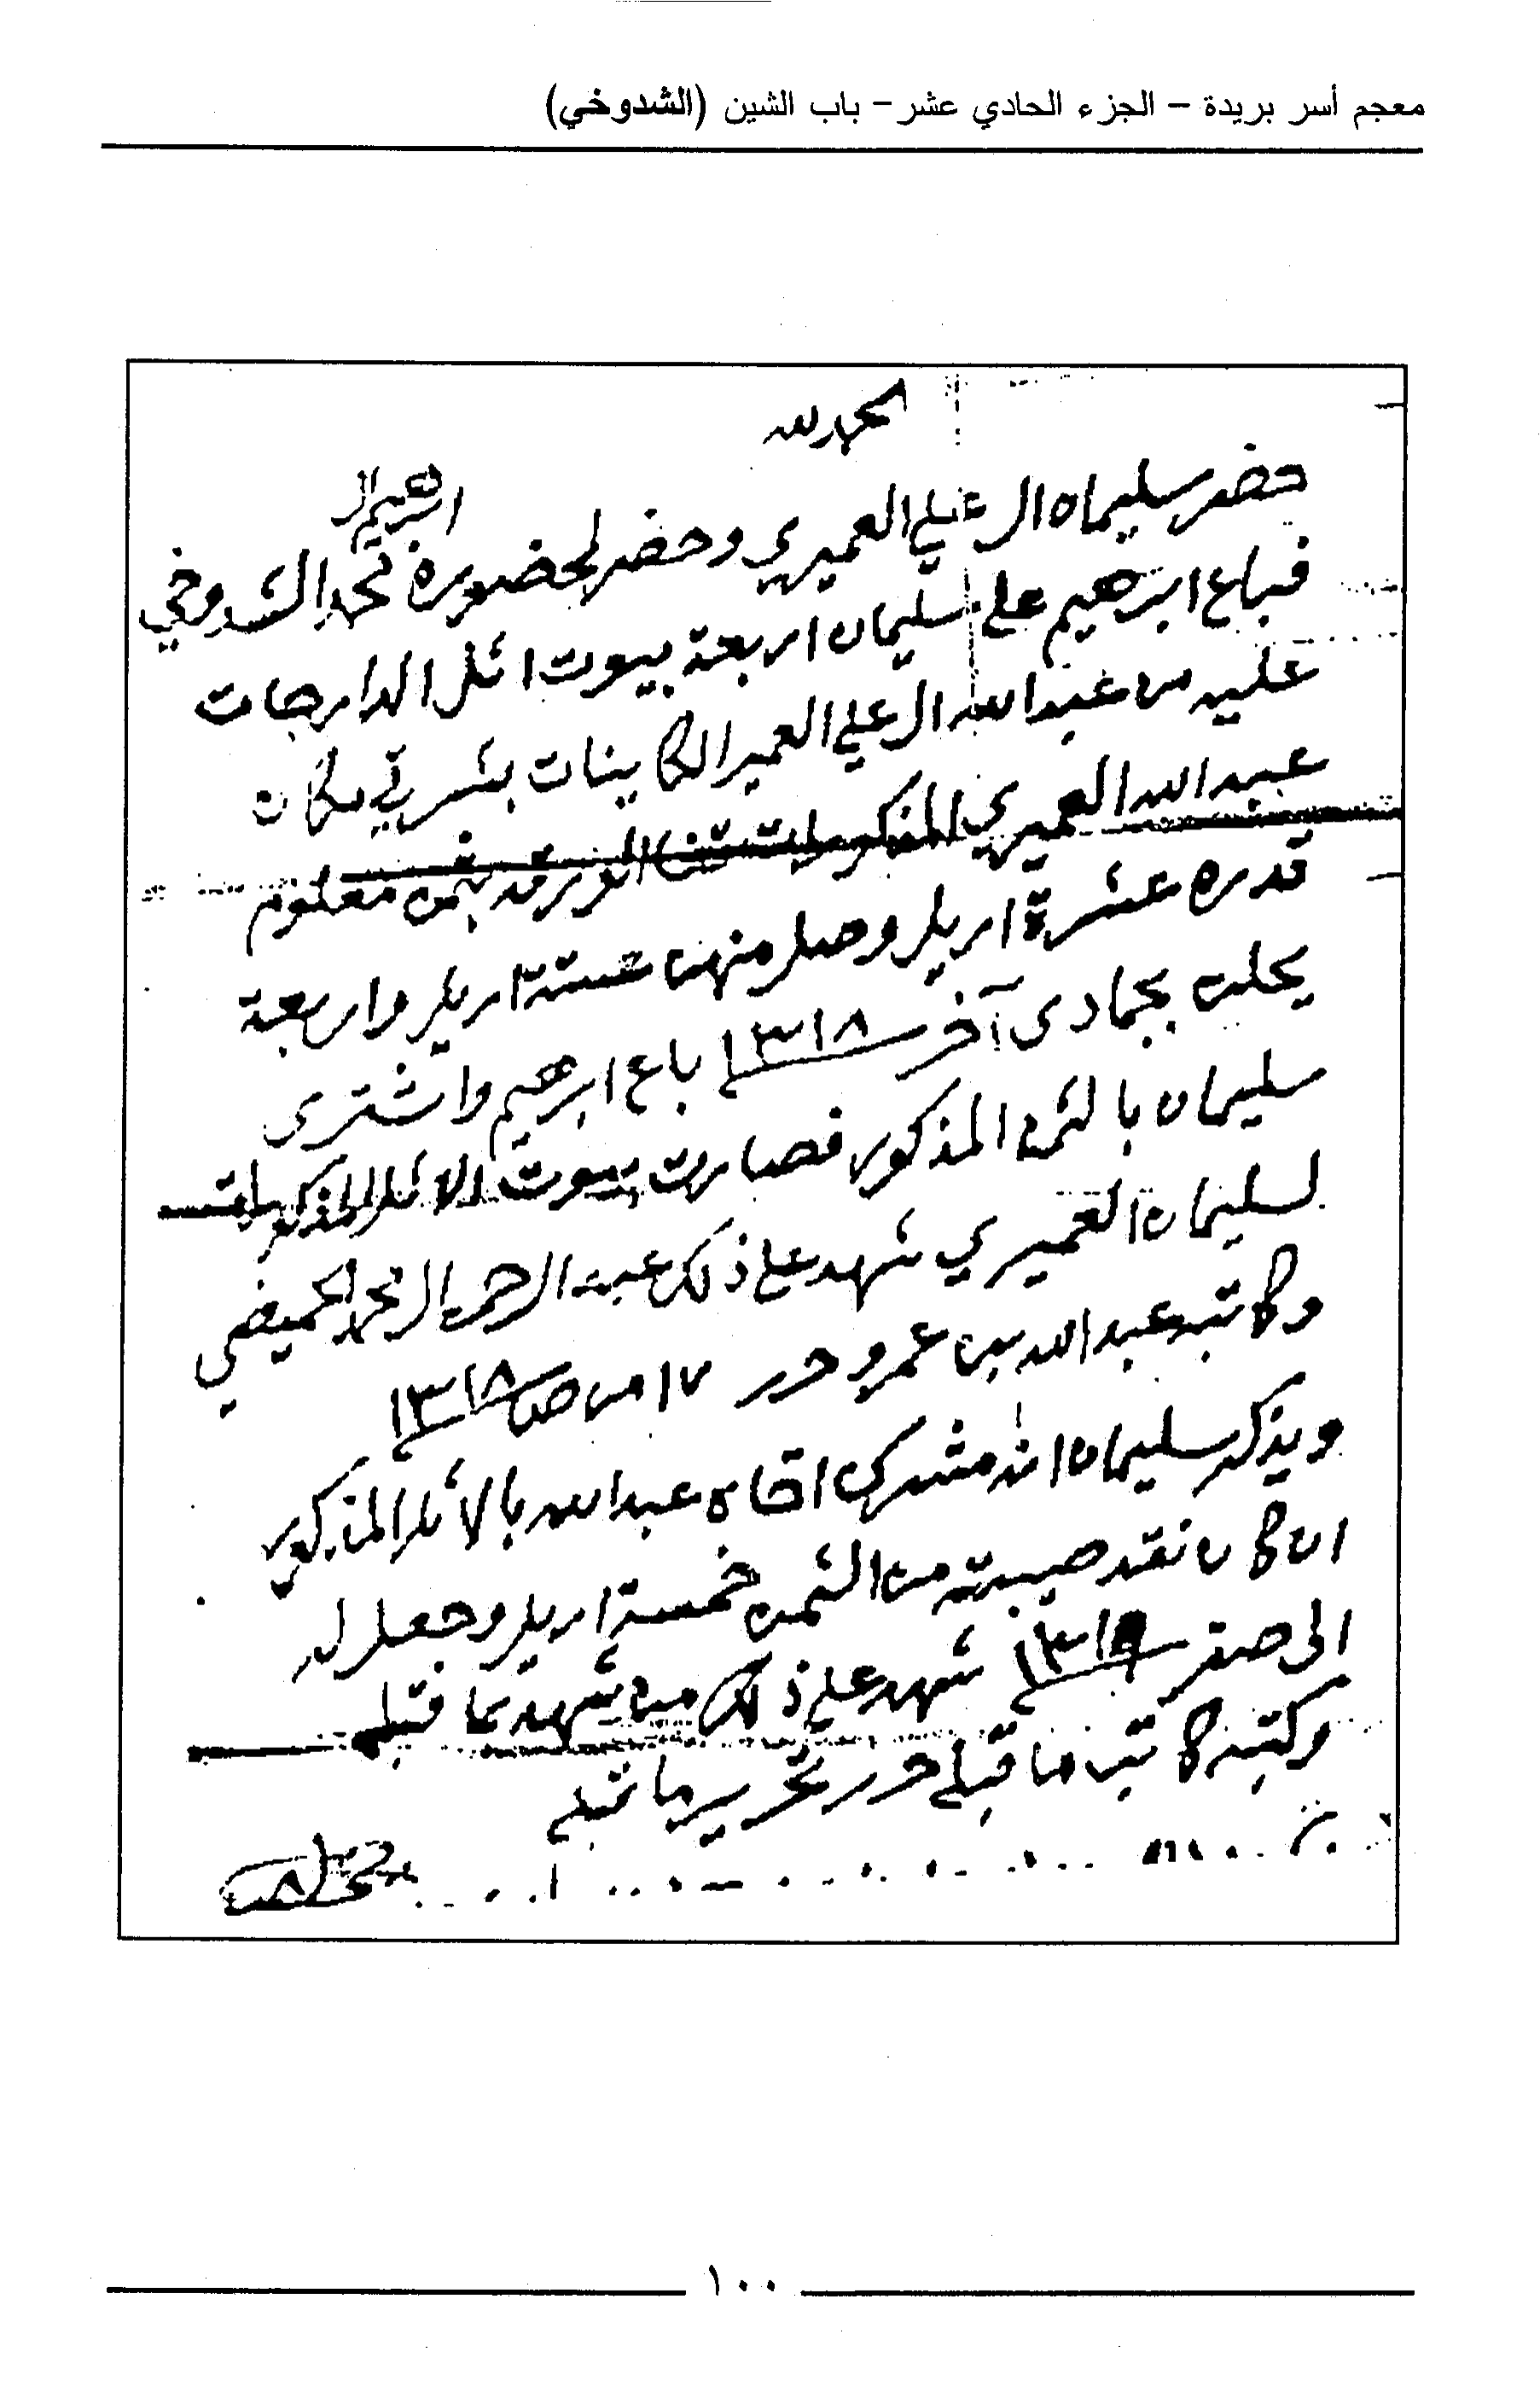 معجم أسر بريدة – الجزء الحادي عشر – باب الشين (الشدوخي)
الحمد لله
حضر سليمان ال علي العميري وحضر لحضوره ابرهيم ال محمد الشدوخي
فباع ابرهيم على سليمان اربعة بيوت اثل الدارجات
عليه من عبدالله ال علي العمير الكاينات بشرقي مكان
عبدالله العميري المذكورات بثمن معلوم
قدره عشرة اريل وصل منهن ستة اريل واربعة
يحلن بجمادى آخر ١٣١٨ باع ابرهيم واشترى
سليمان بالثمن المذكور فصارت بيوت الاثل المذكورات
لسليمان العميري شهد على ذلك عبدالرحمن ال محمد الحميضي
وكاتبه عبدالله بن عمرو حرر ١٧ من ص ١٣١٨
ويذكر سليمان انه مشرك اخاه عبدالله بالاثل المذكور
ان كان نقد صيبته من الثمن خمسة اريل وجعل له
الى صفر ١٣١٩ شهد على ذلك من شهد بما قبله
وكتبه كاتب ما قبله حرر تحرير ما قبله
١٠٠